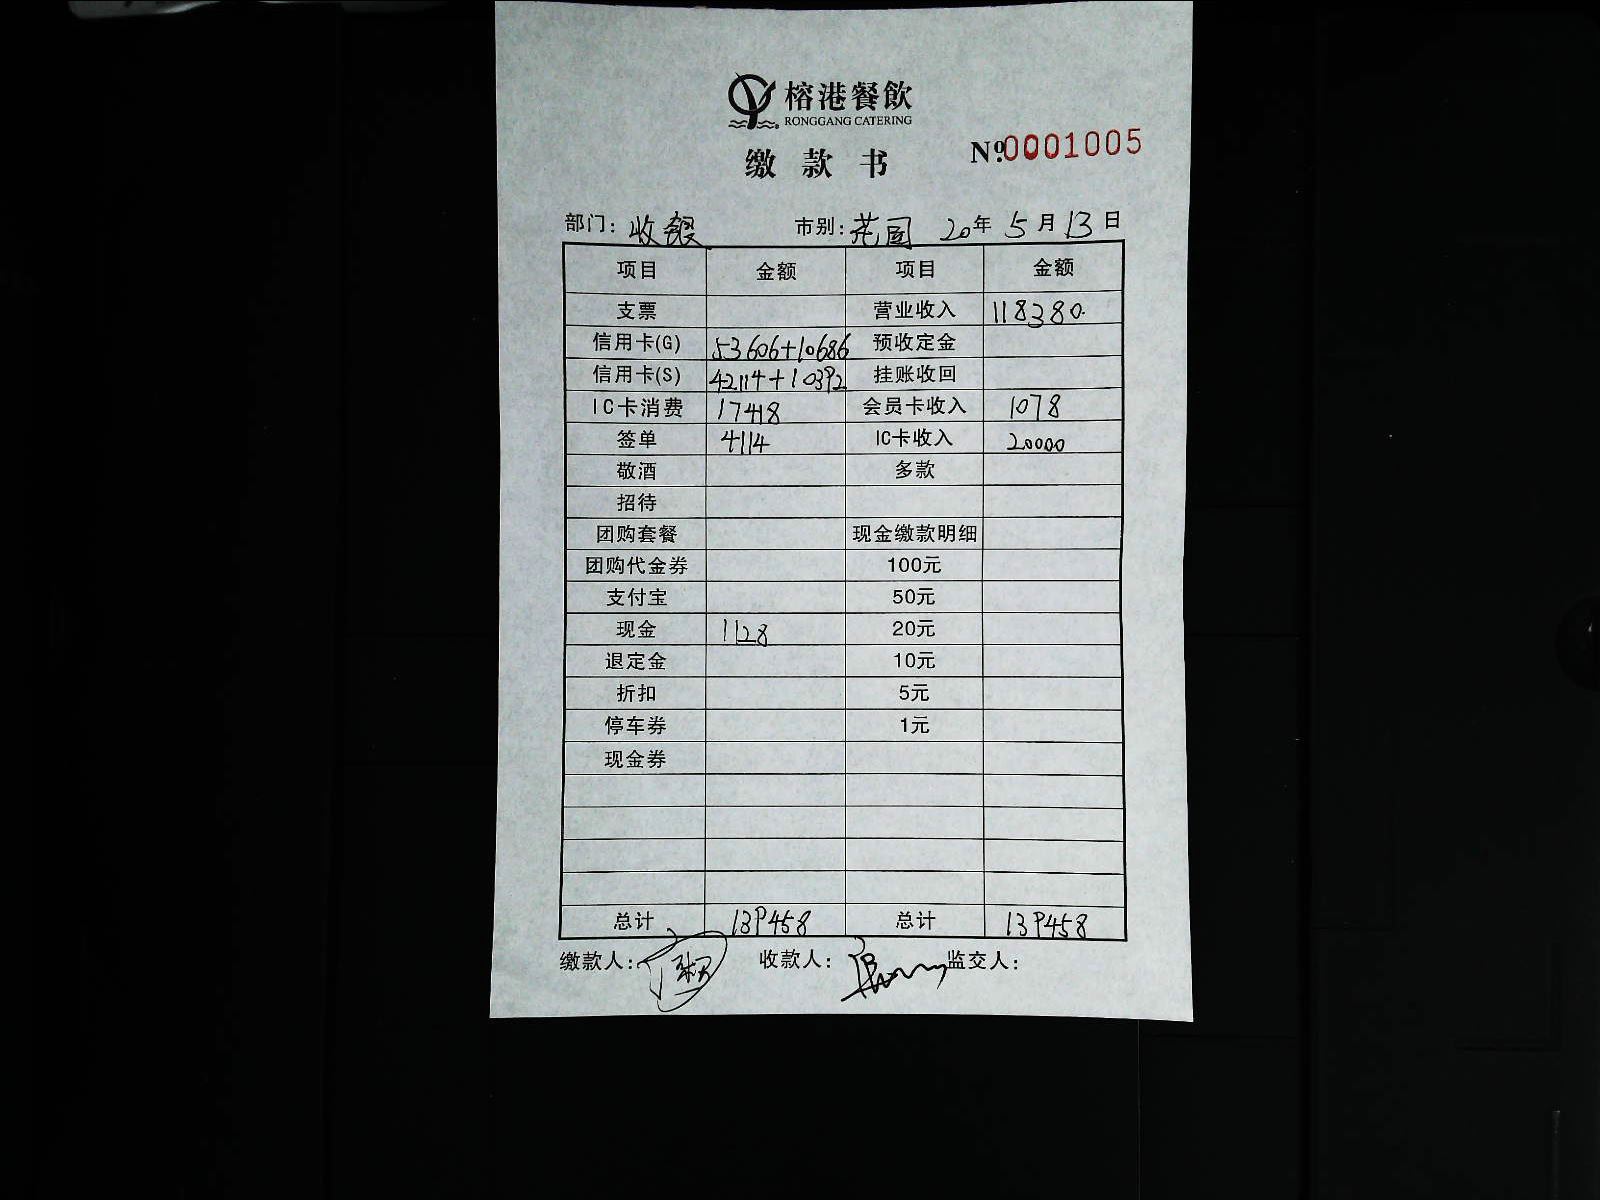 榕港餐飲
RONGGANG CATERING
缴款书 №0001005
部门: 收银 市别: 花园 20年 5月 13日
项目 金额 项目 金额
支票 营业收入 118380.
信用卡(G) 53606+10686 预收定金
信用卡(S) 42114+10392 挂账收回
IC卡消费 17418 会员卡收入 1078
签单 4114 IC卡收入 20000
敬酒 多款
招待
团购套餐 现金缴款明细
团购代金券 100元
支付宝 50元
现金 1128 20元
退定金 10元
折扣 5元
停车券 1元
现金券
总计 139458 总计 139458
缴款人: 收款人: 监交人: